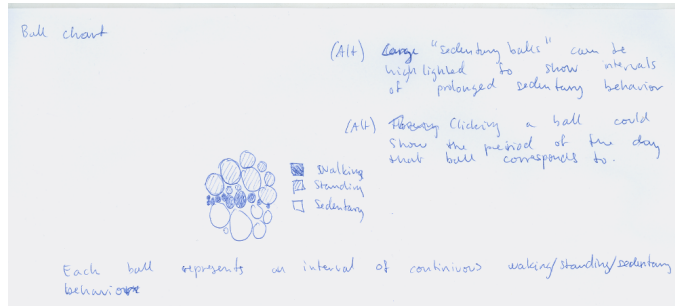 Ball chart
(Alt) Large "sedentary balls" can be
highlighted to show intervals
of prolonged sedentary behavior
(Alt) Clicking a ball could
show the period of the day
that ball corresponds to.
Walking
Standing
Sedentary
Each ball represents an interval of continuous walking/standing/sedentary
behavior